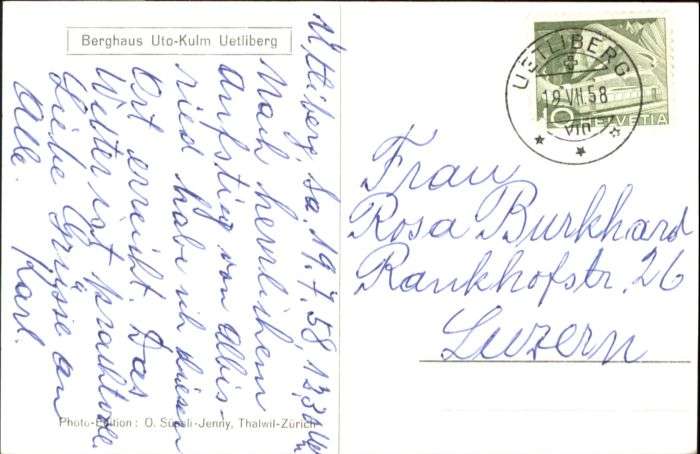 Berghaus Uto-Kulm Uetliberg
Ütliberg, Sa. 19.7.58, 13,30 Uh
Nach herrlichem
Aufstieg von Albis-
ried habe ich diesen
Ort erreicht. Das
Wetter ist prachtvoll.
Liebe Grüsse an
Alle. Karl.
Photo-Edition : O. Süssli-Jenny, Thalwil-Zürich
UETLIBERG
19 VII.58
VIII
10 HELVETIA
Frau
Rosa Burkhard
Rankhofstr. 26
Luzern